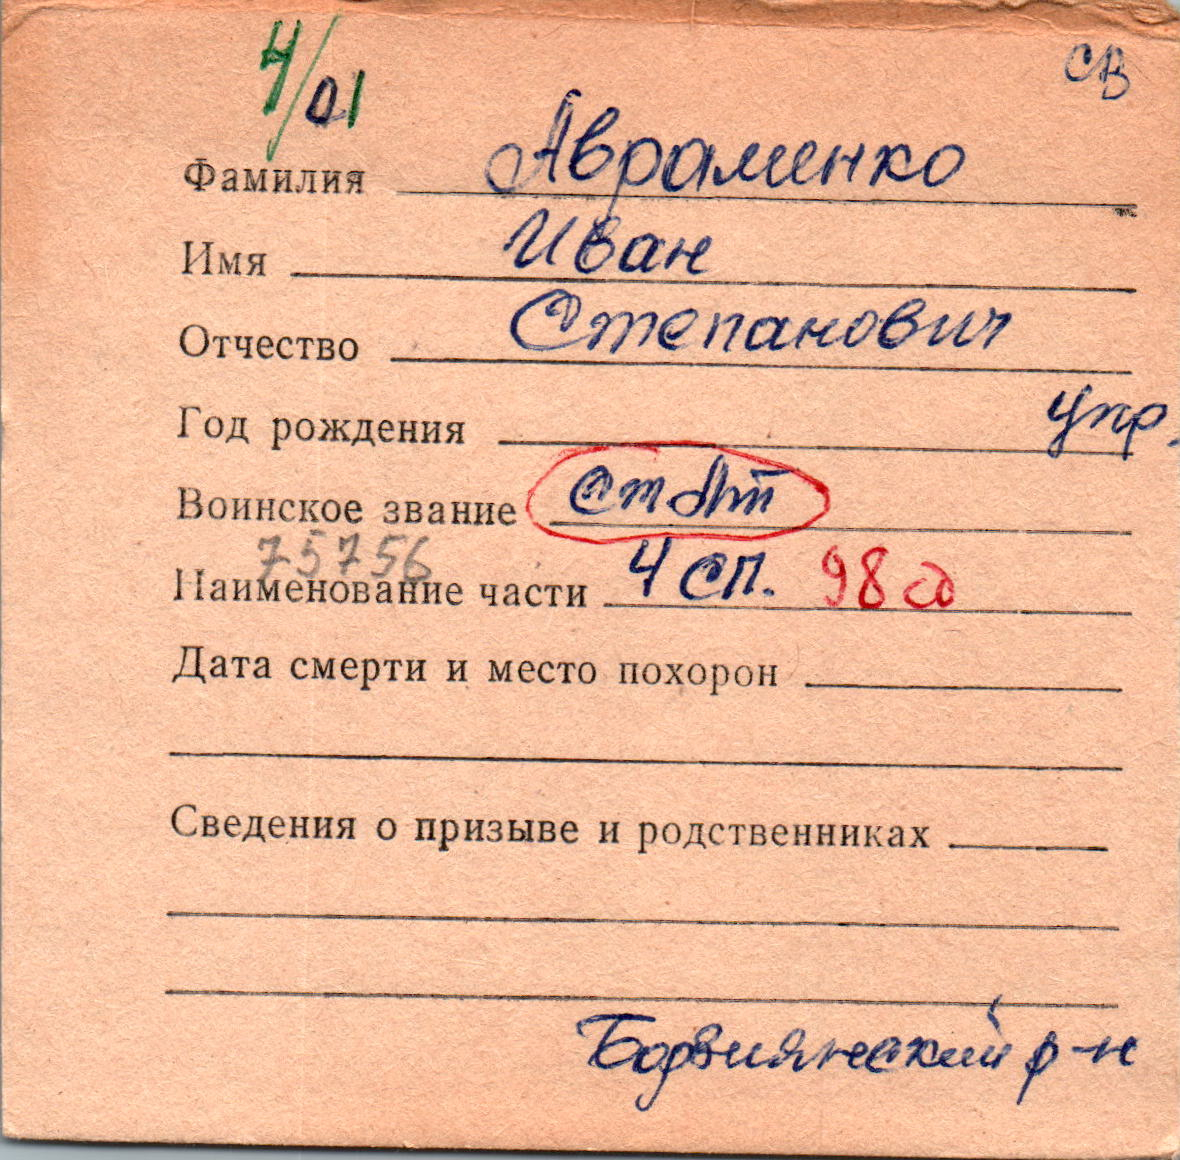 4/01
СВ
Фамилия Авраменко
Имя Иван
Отчество Степанович
Год рождения упр.
Воинское звание ст. лт
75756
Наименование части 4 сп. 98 сд
Дата смерти и место похорон
Сведения о призыве и родственниках
р-н